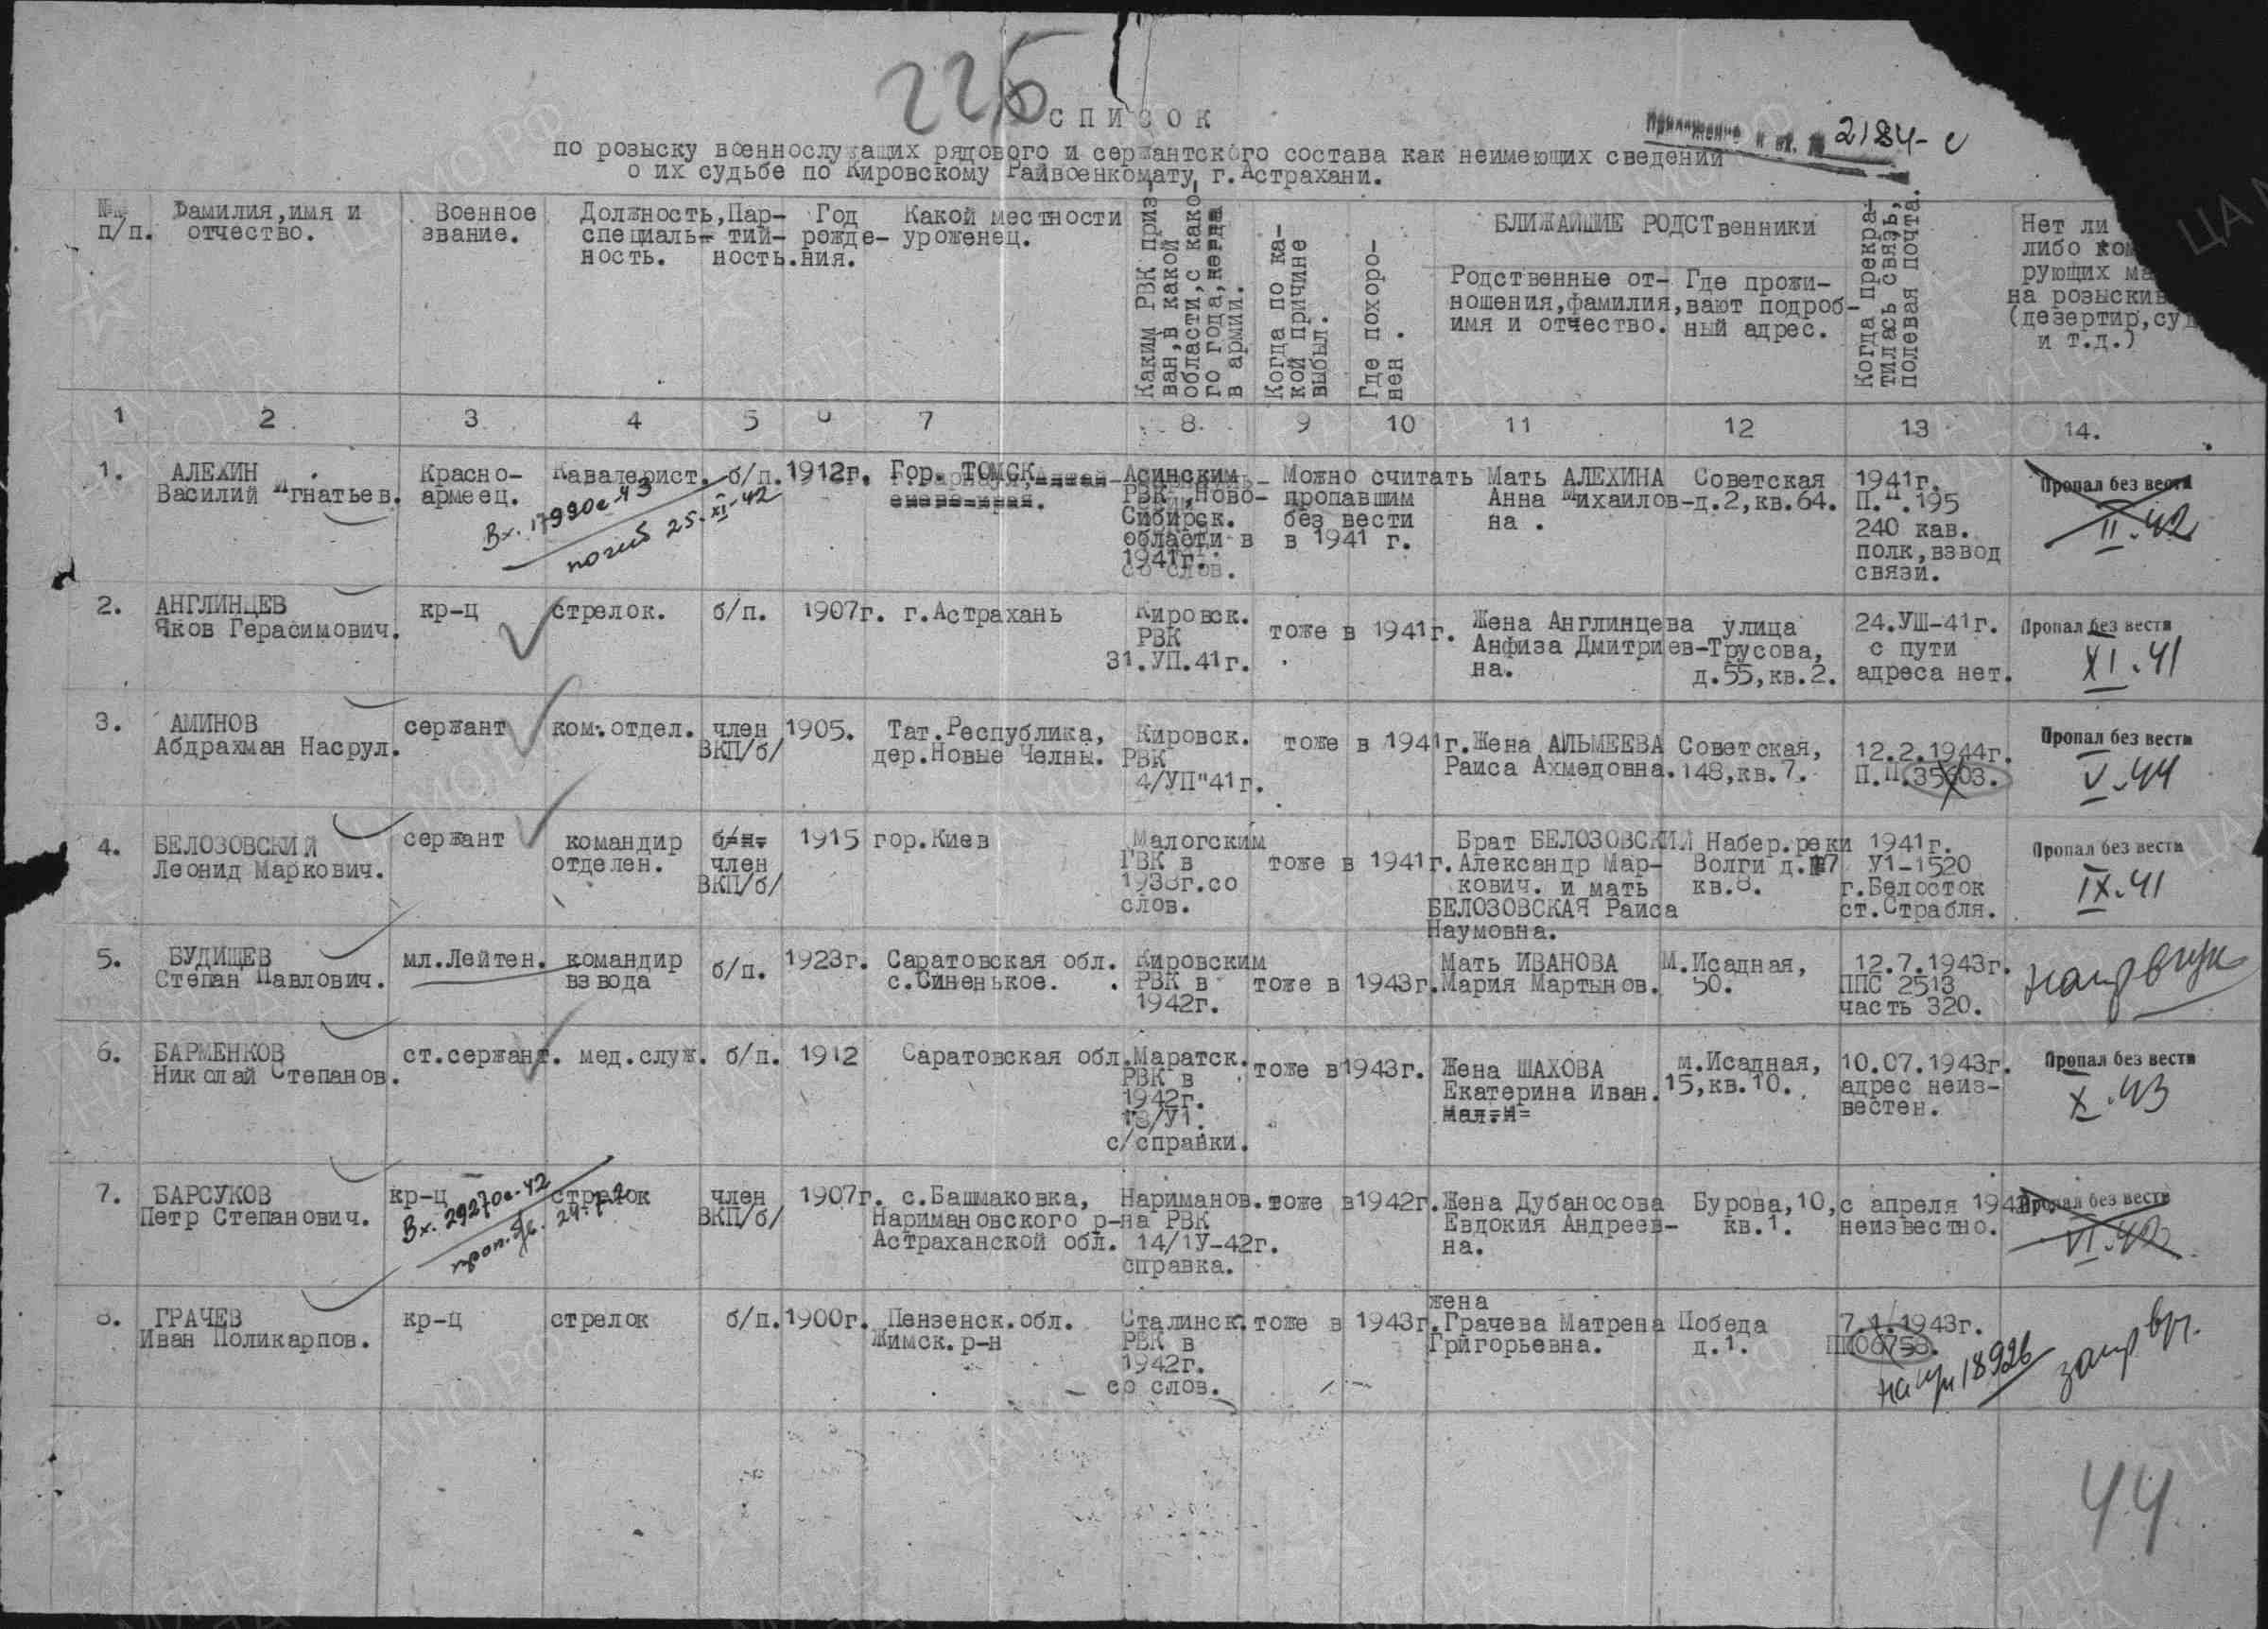 226
СПИСОК
Приложение к вх. № 2184-с
по розыску военнослужащих рядового и сержантского состава как неимеющих сведений
о их судьбе по Кировскому Райвоенкомату г.Астрахани.
№№ п/п.
Фамилия,имя и отчество.
Военное звание.
Должность, специаль- ность.
Пар- тий- ность.
Год рожде- ния.
Какой местности уроженец.
Каким РВК приз- ван,в какой области,с како- го года, в армии.
Когда по ка- кой причине выбыл.
Где похоро- нен.
БЛИЖАЙШИЕ РОДСТвенники
Родственные от- ношения,фамилия, имя и отчество.
Где прожи- вают подроб- ный адрес.
Когда прекра- тилась связь, полевая почта.
Нет ли
либо ком
рующих ма
на розыскив
(дезертир,суд
и т.д.)
1 2 3 4 5 6 7 8. 9 10 11 12 13 14.
1. АЛЕХИН
Василий Игнатьев.
Красно-
армеец.
Кавалерист.
Вх. 17990с-43
погиб 25.XI-42
б/п.
1912г.
Гор. ТОМСК
Асинским
РВК, Ново-
Сибирск.
области в
1941г.
со слов.
Можно считать
пропавшим
без вести
в 1941 г.
Мать АЛЕХИНА
Анна Михайлов-
на .
Советская
д.2,кв.64.
1941г.
П.П.195
240 кав.
полк,взвод
связи.
Пропал без вести
II.42
2. АНГЛИНЦЕВ
Яков Герасимович.
кр-ц
стрелок.
б/п.
1907г.
г.Астрахань
Кировск.
РВК
31.УП.41г.
тоже в 1941г.
Жена Англинцева
Анфиза Дмитриев-
на.
улица
Трусова,
д.55,кв.2.
24.УШ-41г.
с пути
адреса нет.
Пропал без вести
XI.41
3. АМИНОВ
Абдрахман Насрул.
сержант
ком.отдел.
член
ВКП/б/
1905.
Тат.Республика,
дер.Новые Челны.
Кировск.
РВК
4/УП"41г.
тоже в 1941г.
Жена АЛЬМЕЕВА
Раиса Ахмедовна.
Советская,
148,кв.7.
12.2.1944г.
П.П.35603.
Пропал без вести
V.44
4. БЕЛОЗОВСКИЙ
Леонид Маркович.
сержант
командир
отделен.
б/п.
член
ВКП/б/
1915
гор.Киев
Малогским
РВК в
1938г.со
слов.
тоже в 1941г.
Брат БЕЛОЗОВСКИЙ
Александр Мар-
кович. и мать
БЕЛОЗОВСКАЯ Раиса
Наумовна.
Набер.реки
Волги д.17
кв.8.
1941г.
У1-1520
г.Белосток
ст.Страбля.
Пропал без вести
IX.41
5. БУДИЩЕВ
Степан Павлович.
мл.Лейтен.
командир
взвода
б/п.
1923г.
Саратовская обл.
с.Синенькое.
Кировским
РВК в
1942г.
тоже в 1943г.
Мать ИВАНОВА
Мария Мартынов.
М.Исадная,
50.
12.7.1943г.
ППС 2513
часть 320.
6. БАРМЕНКОВ
Николай Степанов.
ст.сержант.
мед.служ.
б/п.
1912
Саратовская обл.
Маратск.
РВК в
1942г.
18/У1.
с/справки.
тоже в1943г.
Жена ШАХОВА
Екатерина Иван.
м.Исадная,
15,кв.10.
10.07.1943г.
адрес неиз-
вестен.
Пропал без вести
X.43
7. БАРСУКОВ
Петр Степанович.
кр-ц
Вх. 29270с-42
стрелок
член
ВКП/б/
1907г.
с.Башмаковка,
Наримановского р-на
Астраханской обл.
Нариманов.
РВК
14/1У-42г.
справка.
тоже в1942г.
Жена Дубаносова
Евдокия Андреев-
на.
Бурова,10,
кв.1.
с апреля 1942
неизвестно.
Пропал без вести
VI.42
8. ГРАЧЕВ
Иван Поликарпов.
кр-ц
стрелок
б/п.
1900г.
Пензенск.обл.
Жимск.р-н
Сталинск.
РВК в
1942г.
со слов.
тоже в 1943г.
жена
Грачева Матрена
Григорьевна.
Победа
д.1.
7.1.1943г.
18926
44